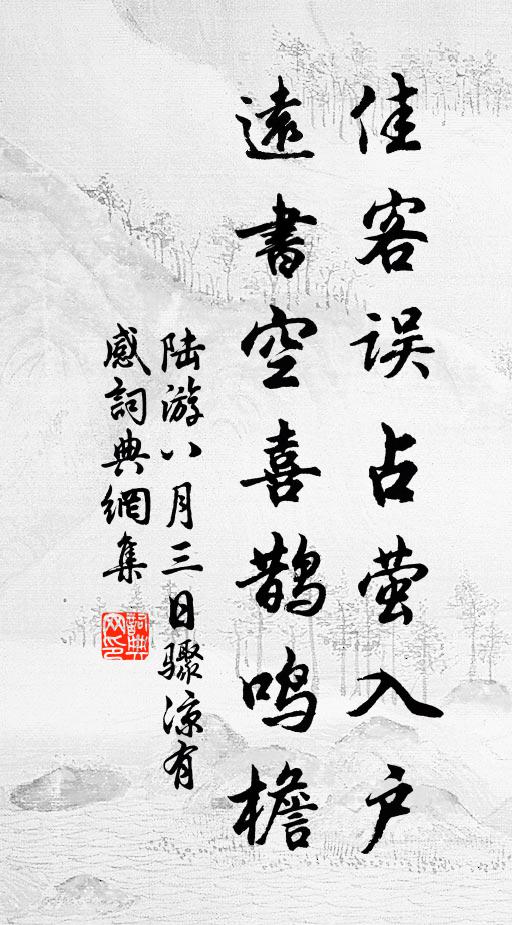 佳客误占萤入户
遠書空喜鹊鸣檐
陆游八月三日骤凉有
感詞典網集
詞典
网印